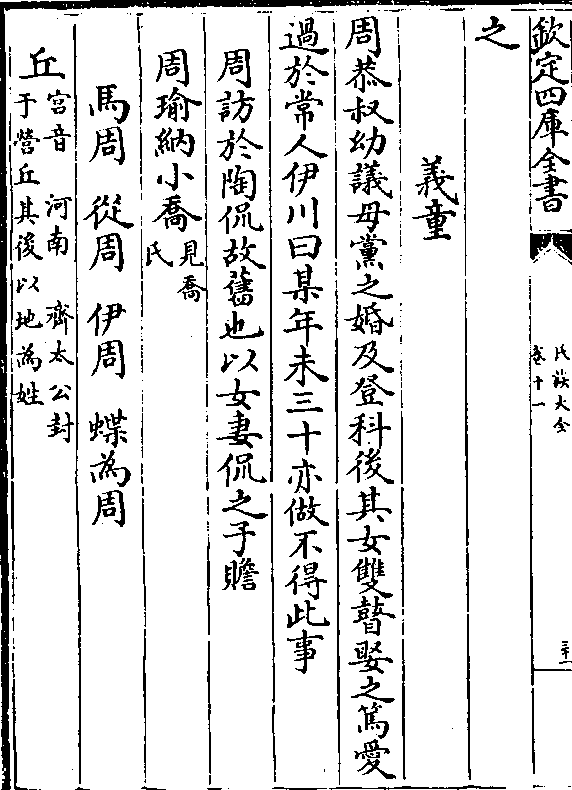 欽定四庫全書
氏族大全
卷十一
之
義童
周恭叔幼議母黨之婚及登科後其女雙瞽娶之篤愛
過於常人伊川曰某年未三十亦做不得此事
周訪於陶侃故舊也以女妻侃之子瞻
周瑜納小喬見喬
氏
馬周 從周 伊周 蝶為周
丘宮音 河南 齊太公封
于營丘其後以地為姓